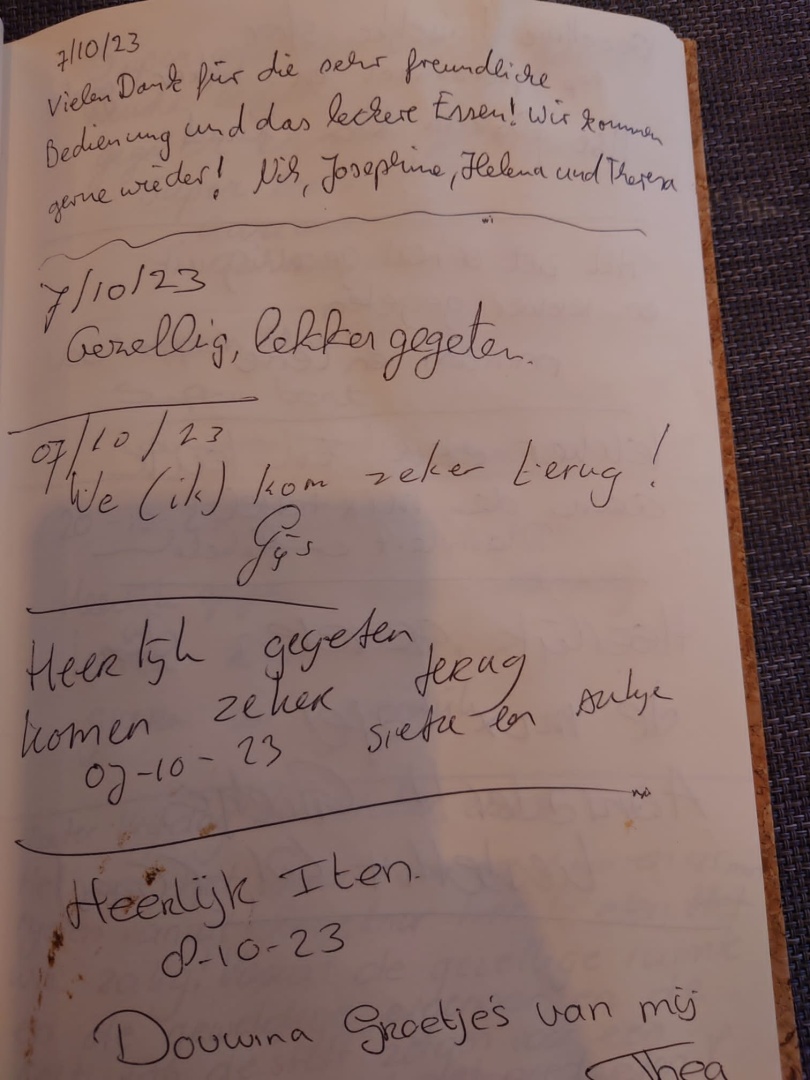 7/10/23
Vielen Dank für die sehr freundliche
Bedienung und das leckere Essen! Wir kommen
gerne wieder! Nils, Josephine, Helena und Theresa
7/10/23
Gezellig, lekker gegeten.
07/10/23
We (ik) kom zeker terug!
Gijs
Heerlijk gegeten
komen zeker terug
07-10-23 en
Heerlijk Iten.
8-10-23
Douwina Groetje's van mij
Thea